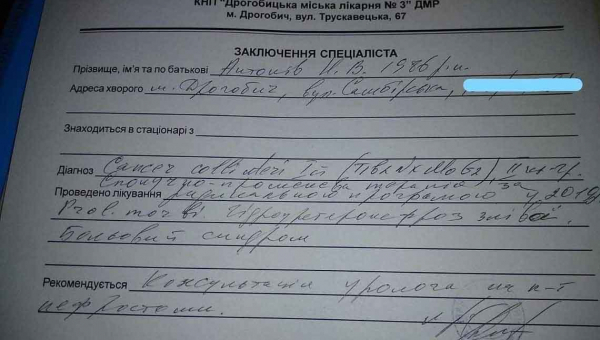 КНП "Дрогобицька міська лікарня № 3" ДМР
м. Дрогобич, вул. Трускавецька, 67
ЗАКЛЮЧЕННЯ СПЕЦІАЛІСТА
Прізвище, ім'я та по батькові Антонів Н. В. 1986 р.н.
Адреса хворого м. Дрогобич, вул. Самбірська,
Знаходиться в стаціонарі з
Діагноз Cancer colli uteri
Сполучно-променева терапія за
Проведено лікування радикальною програмою у 2019р
Prol. morbi. Гідроуретеронефроз зліва.
Больовий синдром
Рекомендується Консультація уролога на п-т
нефростоми.